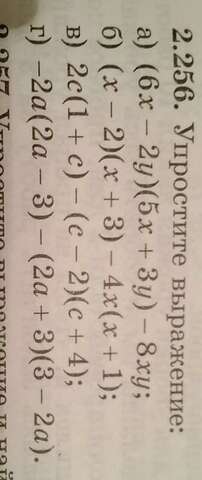 2.256. Упростите выражение:
а) (6x − 2y)(5x + 3y) − 8xy;
б) (x − 2)(x + 3) − 4x(x + 1);
в) 2c(1 + c) − (c − 2)(c + 4);
г) −2a(2a − 3) − (2a + 3)(3 − 2a).
2.257. Упростите выражение и най